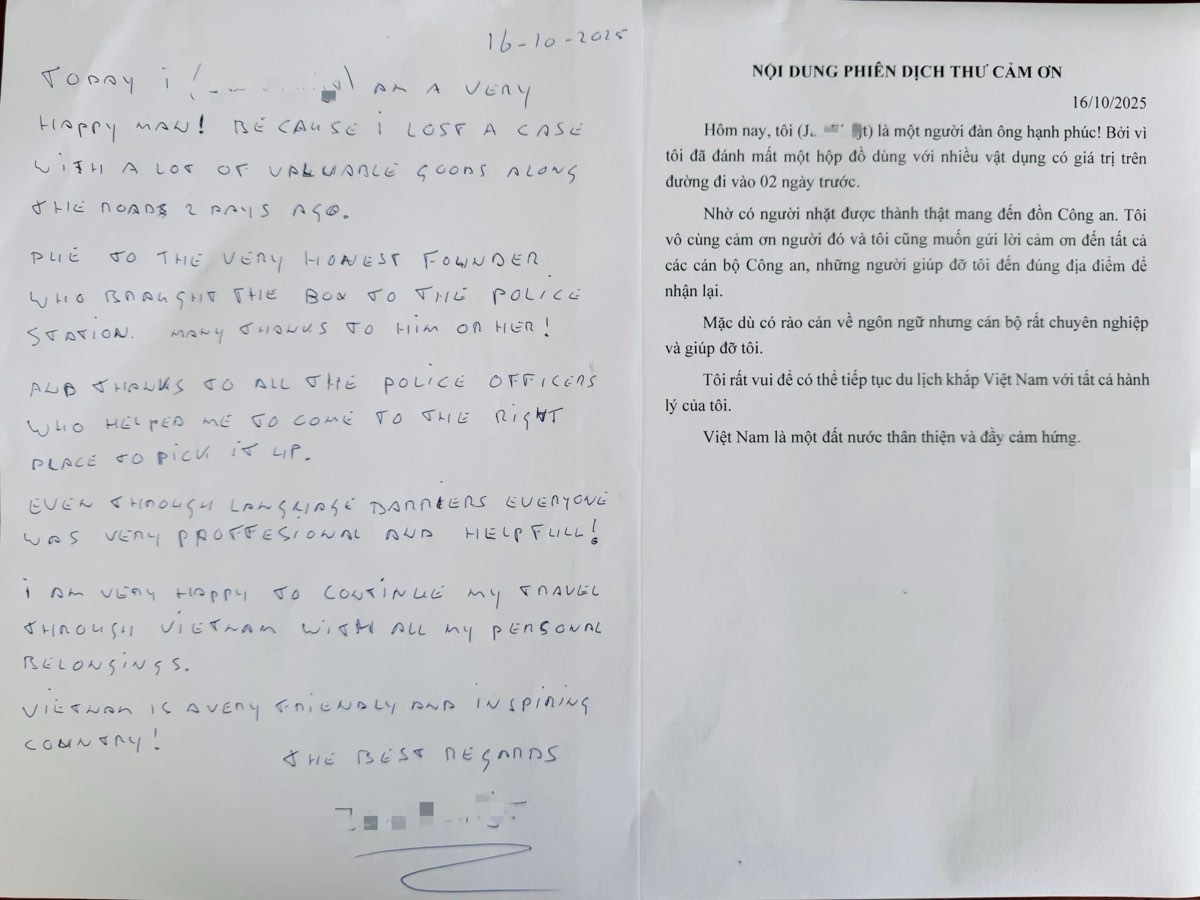 16-10-2025
TODAY i ( ) AM A VERY
HAPPY MAN! BECAUSE i LOST A CASE
WiTH A LOT OF VALUABLE GOODS ALONG
THE ROADS 2 DAYS AGO.
DUE TO THE VERY HONEST FOUNDER
WHO BRAUGHT THE BOX TO THE POLICE
STATION. MANY THANKS TO HiM OR HER!
AND THANKS TO ALL THE POLICE OFFICERS
WHO HELPED ME TO COME TO THE RiGHT
PLACE TO PiCK iT UP.
EVEN THROUGH LANGUAGE BARRIERS EVERYONE
WAS VERY PROFFESIONAL AND HELPFULL!
i AM VERY HAPPY TO CONTiNUE MY TRAVEL
THROUGH ViETNAM WiTH ALL MY PERSONAL
BELONGiNGS.
ViETNAM IS A VERY FRiENDLY AND INSPiRiNG
COUNTRY!
THE BEST REGARDS
NỘI DUNG PHIÊN DỊCH THƯ CẢM ƠN
16/10/2025
Hôm nay, tôi (J. jt) là một người đàn ông hạnh phúc! Bởi vì
tôi đã đánh mất một hộp đồ dùng với nhiều vật dụng có giá trị trên
đường đi vào 02 ngày trước.
Nhờ có người nhặt được thành thật mang đến đồn Công an. Tôi
vô cùng cảm ơn người đó và tôi cũng muốn gửi lời cảm ơn đến tất cả
các cán bộ Công an, những người giúp đỡ tôi đến đúng địa điểm để
nhận lại.
Mặc dù có rào cản về ngôn ngữ nhưng cán bộ rất chuyên nghiệp
và giúp đỡ tôi.
Tôi rất vui để có thể tiếp tục du lịch khắp Việt Nam với tất cả hành
lý của tôi.
Việt Nam là một đất nước thân thiện và đầy cảm hứng.